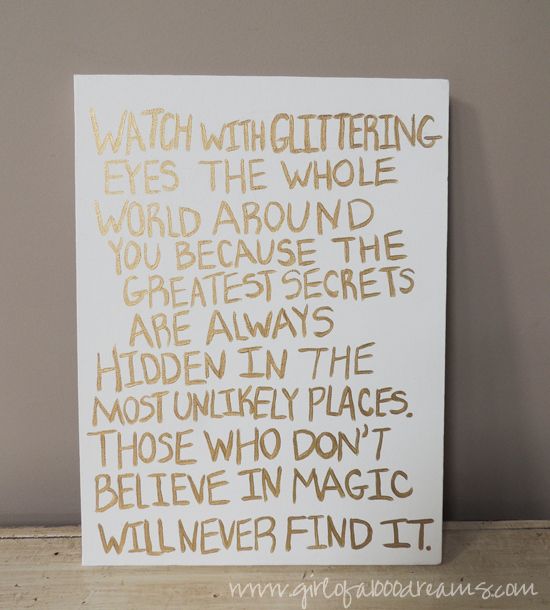 WATCH WITH GLITTERING
EYES THE WHOLE
WORLD AROUND
YOU BECAUSE THE
GREATEST SECRETS
ARE ALWAYS
HIDDEN IN THE
MOST UNLIKELY PLACES.
THOSE WHO DON'T
BELIEVE IN MAGIC
WILL NEVER FIND IT.
www.girlofa1000dreams.com